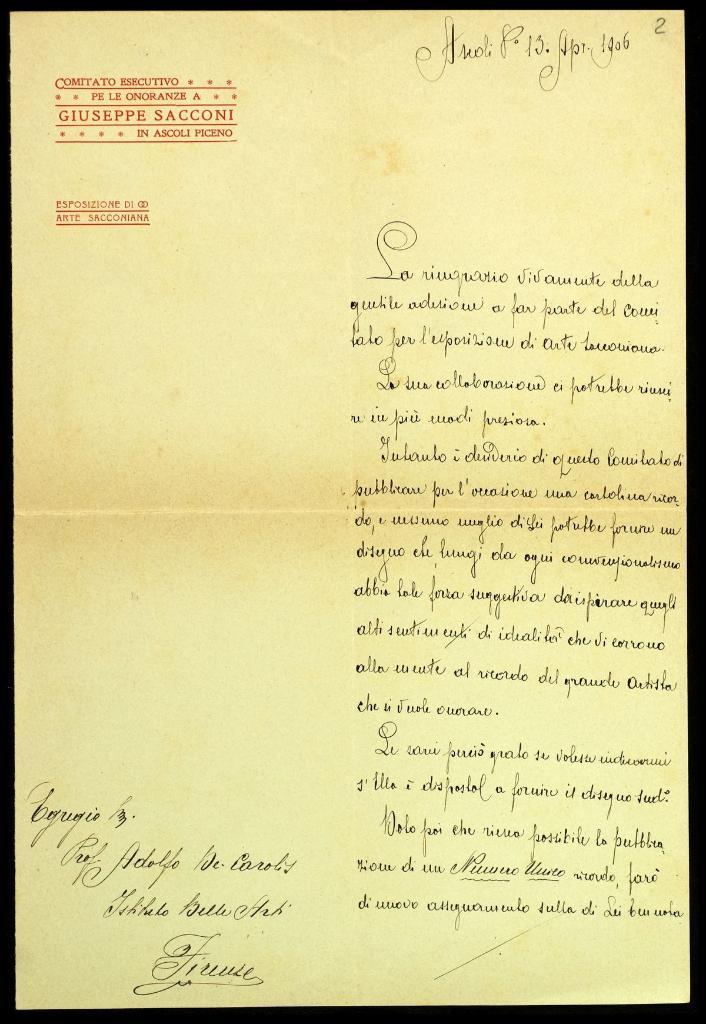 2
Ascoli P.o 13. Apr. 1906
COMITATO ESECUTIVO * * *
* * PE LE ONORANZE A * *
GIUSEPPE SACCONI
* * * * IN ASCOLI PICENO
ESPOSIZIONE DI
ARTE SACCONIANA
La ringrazio vivamente della
gentile adesione a far parte del Comi-
tato per l'esposizione di Arte Sacconiana.
La sua collaborazione ci potrebbe riusci-
re in più modi preziosa.
Intanto è desiderio di questo Comitato di
pubblicare per l'occasione una cartolina ricor-
do, e nessuno meglio di Lei potrebbe fornire un
disegno che, lungi da ogni convenzionalismo
abbia tale forza suggestiva da ispirare quegli
alti sentimenti di idealità che vi corrono
alla mente al ricordo del grande Artista
che si vuole onorare.
Le sarei perciò grato se volesse indicarmi
s'Ella è disposto a fornire il disegno sud.o
Dato poi che riesca possibile la pubblica-
zione di un Numero Unico ricordo, farò
di nuovo assegnamento sulla di Lei ben nota
Egregio Sig.
Prof. Adolfo De Carolis
Istituto Belle Arti
Firenze